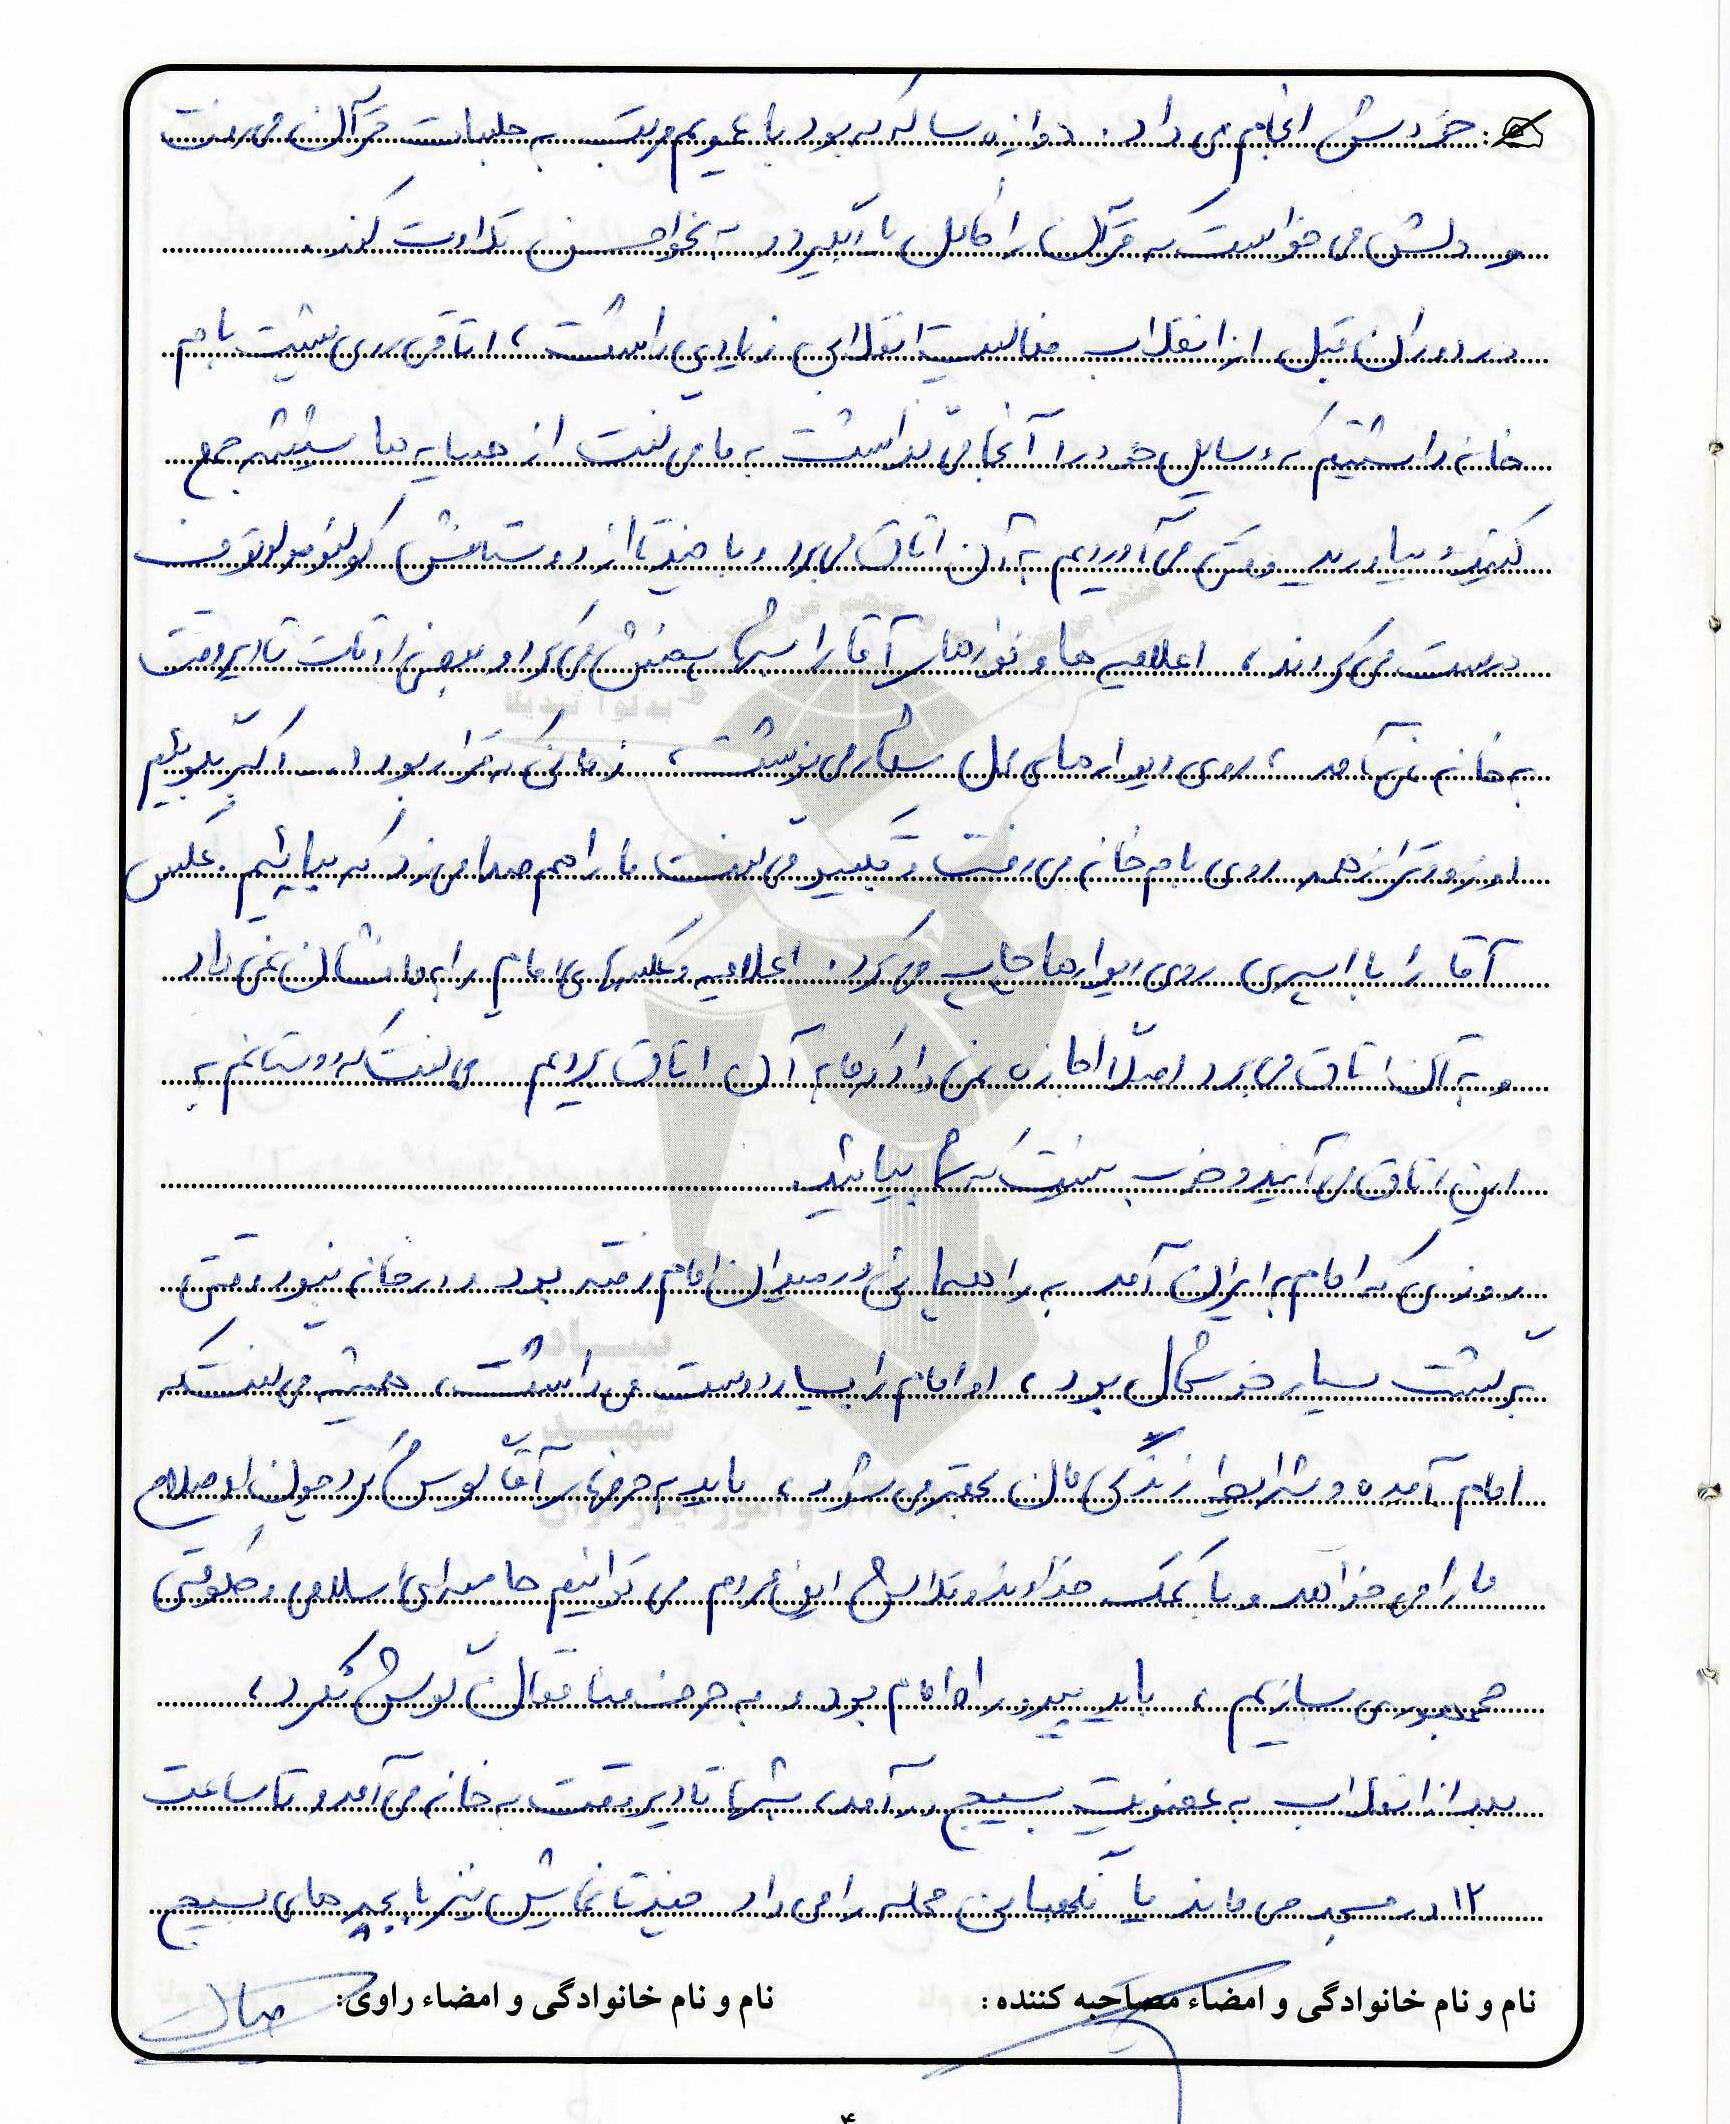 خودش انجام می داد. دوازده ساله که بود با عمویم مرتب به جلسات قرآن می رفت
و دلش می خواست که قرآن را کامل یاد بگیرد و به نحو احسن تلاوت کند.
در دوران قبل از انقلاب فعالیت انقلابی زیادی داشت، اتاقی روی پشت بام
خانه داشتیم که وسایل خود را آنجا می گذاشت به ما می گفت از همسایه ها شیشه جمع
کنید و بیاورید وقتی می آوردیم به آن اتاق می برد و با چند تا از دوستانش کوکتل مولوتوف
درست می کردند، اعلامیه ها و نوارهای آقا را شبها پخش می کرد و بعضی اوقات تا دیروقت
به خانه نمی آمد، روی دیوارهای محل شعار می نوشت، زمانی که قرار بود ا... اکبر بگوییم
او زودتر از همه روی بام خانه می رفت و تکبیر می گفت ما را هم صدا می زد که بیائیم. عکس
آقا را با اسپری روی دیوارها چاپ می کرد. اعلامیه و عکسهای امام را به ما نشان نمی داد
و به آن اتاق می برد اصلاً اجازه نمی داد که ما به آن اتاق برویم می گفت که دوستانم به
این اتاق می آیند و خوب نیست که شما بیائید.
روزی که امام به ایران آمد به راهپیمائی در میدان امام رفته بود و در خانه نبود وقتی
برگشت بسیار خوشحال بود، او امام را بسیار دوست می داشت، همیشه می گفت که
امام آمده و شرایط زندگی مان بهتر می شود، باید به حرفهای آقا گوش کرد چون او صلاح
ما را می خواهد و با کمک خداوند و تلاش این مردم می توانیم جامعه ای اسلامی و حکومتی
جمهوری سازیم، باید پیرو راه امام بود و به حرف منافقان گوش نکرد،
بعد از انقلاب به عضویت بسیج درآمد، شبها تا دیروقت به خانه می آمد و تا ساعت
۱۲ در مسجد می ماند یا نگهبانی محله را می داد چند تا نمایش نیز با بچه های بسیج
نام و نام خانوادگی و امضاء مصاحبه کننده: نام و نام خانوادگی و امضاء راوی:
۴